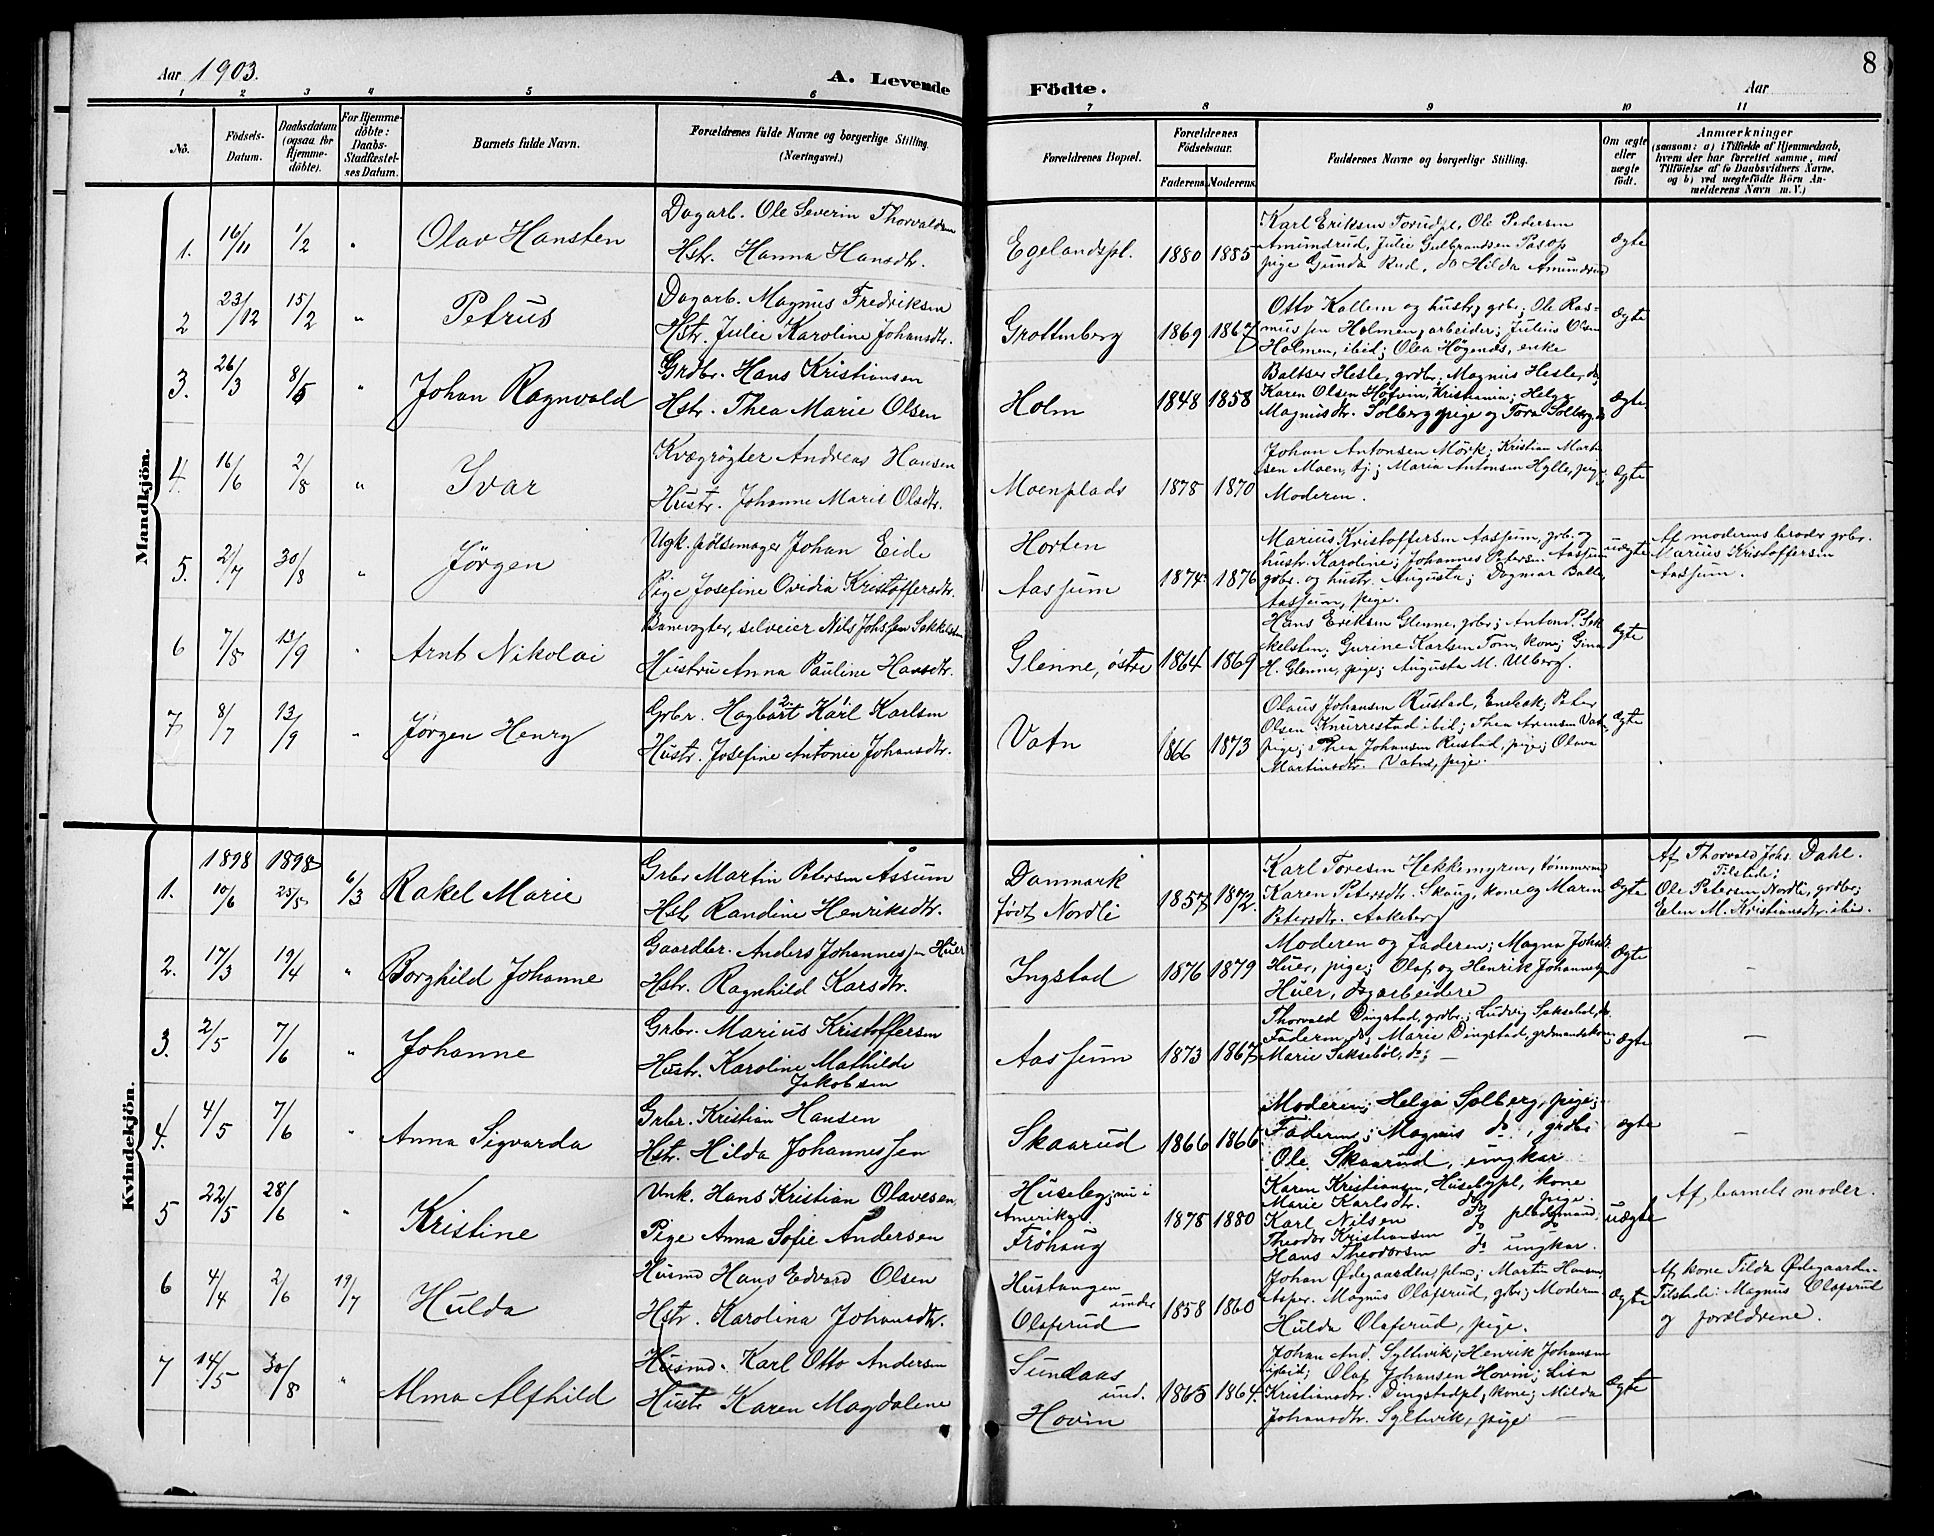 Aar 1903.
A. Levende
Födte.
Aar
8
1 2 3 4 5 6 7 8 9 10 11
Nö.
Födsels-
Datum.
Daabsdatum
(ogsaa for
Hjemme-
döbte).
For Hjemme-
döbte:
Daabs-
Stadfæstel-
ses Datum.
Barnets fulde Navn.
Forældrenes fulde Navne og borgerlige Stilling.
(Næringsvei.)
Forældrenes Bopæl.
Forældrenes
Födselsaar.
Faderens. Moderens.
Faddernes Navne og borgerlige Stilling.
Om ægte
eller
uægte
født.
Anmærkninger
(saasom: a) i Tilfælde af Hjemmedaab,
hvem der har forrettet samme, med
Tilföielse af to Daabsvidners Navne.
og b) ved uægtefödte Börn An-
melderens Navn m. V.)
Mandkjön.
1. 16/11 1/2 " Olav Hansten
Dagarb. Ole Severin Thorvaldsen
Hstr. Hanna Hansdtr.
Egelandspl. 1880 1885
Karl Eriksen Torudpl, Ole Pedersen
Amundrud, Julie Gulbrandsen Pasop
pige Gunda Rud, do Hilda Amundrud
Ægte
2 23/12 15/2 " Petrus
Dagarb. Magnus Fredriksen
Hstr. Julie Karoline Johansdtr.
Grottenberg 1869 1867
Otto Kallem og hustr, grbr; Ole Ras-
mussen Holmen, arbeider; Julius Olsen
Holmen, ibid; Olea Högenæs, enke
Ægte
3. 26/3 8/5 " Johan Ragnvald
Grdbr. Hans Kristiansen
Hstr. Thea Marie Olsen
Holm 1848 1858
Baltser Hesle, grdbr; Magnus Hesle, do;
Karen Olsen Hofvin, Kristiania; Helga
Magnusdtr. Solberg pige og Tora Solberg, do
Ægte.
4. 16/6 2/8 " Ivar
Kvægrögter Andreas Hansen
Hustr. Johanne Marie Olsdtr.
Moenplads 1878 1870
Johan Antonsen Mörk; Kristian Marti-
sen Moen, tj; Maria Antonsen Hylle, pige;
Moderen.
Ægte
5. 2/7 30/8 " Jörgen
Ugk. pölsemager Johan Eide
Pige Josefine Ovidia Kristoffersdtr.
Horten
Aassum 1874 1876
Marius Kristoffersen Aassum, grb. og
hustr. Karoline; Johannes Petersen Aassum
gbr. og hustr. Augusta; Dagmar Balle,
Aassum, pige.
uægte
Af moderens broder grbr.
Marius Kristoffersen
Aassum.
6 7/8 13/9 " Arnt Nikolai
Banevogter, selveier Nils Johssen Sekkelsten
Hustru Anna Pauline Hansdtr.
Glenne, östre 1864 1869
Hans Eriksen Glenne, grbr; Anton P. Sek-
kelsten; Gurine Karlsen Tom, kone; Gina
H. Glenne, pige; Augusta M. Ulberg.
Ægte
7 8/7 13/9 " Jörgen Henry
Grbr. Hagbart Karl Karlsen
Hustr. Josefine Antonie Johansdtr.
Vatn 1866 1873
Olaus Johansen Rustad, Enebak; Peter
Olsen Knurrestad ibid; Thea Arnesen Vatn,
pige; Thea Johansen Rustad, pige; Olava
Martinsdtr. Vatn, pige.
Ægte
Kvindekjön.
1898 1898
1. 10/6 25/5 6/3 Rakel Marie
Grbr Martin Petersen Åssum
Hst Randine Henriksdtr.
Danmark
født Nordli 1857 1872.
Karl Toresen Hekkemyren, tømmermd
Karen Petersdtr. Skaug, kone og Maren
Petersdtr. Aakeberg
Ægte
Af Thorvald Johs. Dahl.
Tilstede;
Ole Petersen Nordli, grdbr;
Elen M. Kristiansdtr. ibid.
2. 17/3 19/4 " Borghild Johanne
Gaardbr. Anders Johannessen Huer
Hstr. Ragnhild Karsdtr.
Ingstad 1876 1879
Moderen og faderen; Magna Johsdtr.
Huer, pige; Olaf og Henrik Johannessen
Huer, dgarbeidere
Ægte
–
3. 2/5 7/6 " Johanne
Grbr. Marius Kristoffersen
Hustr. Karoline Mathilde
Jakobsen
Aassum 1873 1867
Thorvald Dingstad, grdbr; Ludvig Saksebøl, do.
Faderen, do; Marie Dingstad, grdmandskone;
Marie Saksebøl, do; –
Ægte
–
4. 4/5 7/6 " Anna Sigvarda
Grbr. Kristian Hansen
Hstr. Hilda Johannessen
Skaarud 1866 1866
Moderen; Helga Solberg, pige;
Faderen; Magnus do, grdbr
Ole Skaarud, ungkar
ægte
–
5 22/5 28/6 " Kristine
Unk. Hans Kristian Olavesen,
Pige Anna Sofie Andersen
Huseby; nu i
Amerika.
Fröhaug 1878 1880
Karen Kristiansen, Husebypl, kone
Marie Karlsdtr. do pige.
Karl Nilsen do pladsmand
Theodor Kristiansen do do
Hans Theodorsen do ungkar.
uægte
Af barnets moder.
6 4/4 2/6 19/7 Hulda
Husmd Hans Edvard Olsen
Hstr. Karolina Johansdtr.
Hustangen
under
Olafsrud 1858 1860
Johan Ødegaarden, plmd; Martin Hansen
Asper. Magnus Olafsrud, gbr; Moderen
Hulda Olafsrud, pige.
Ægte
Af kone Tilda Ødegaarden
Tilstede: Magnus Olafsrud
og forældrene.
7 14/5 30/8 " Alma Alfhild
Husmd. Karl Otto Andersen
Hustr Karen Magdalene
Sundaas
und.
Hovin 1865 1864.
Johan And. Syltvik; Henrik Johansen
ibid; Olaf Johansen Hovin; Lisa
Kristiansdtr. Dingstadpl, kone; Milda
Johansdtr. Syltvik, pige –
Ægte